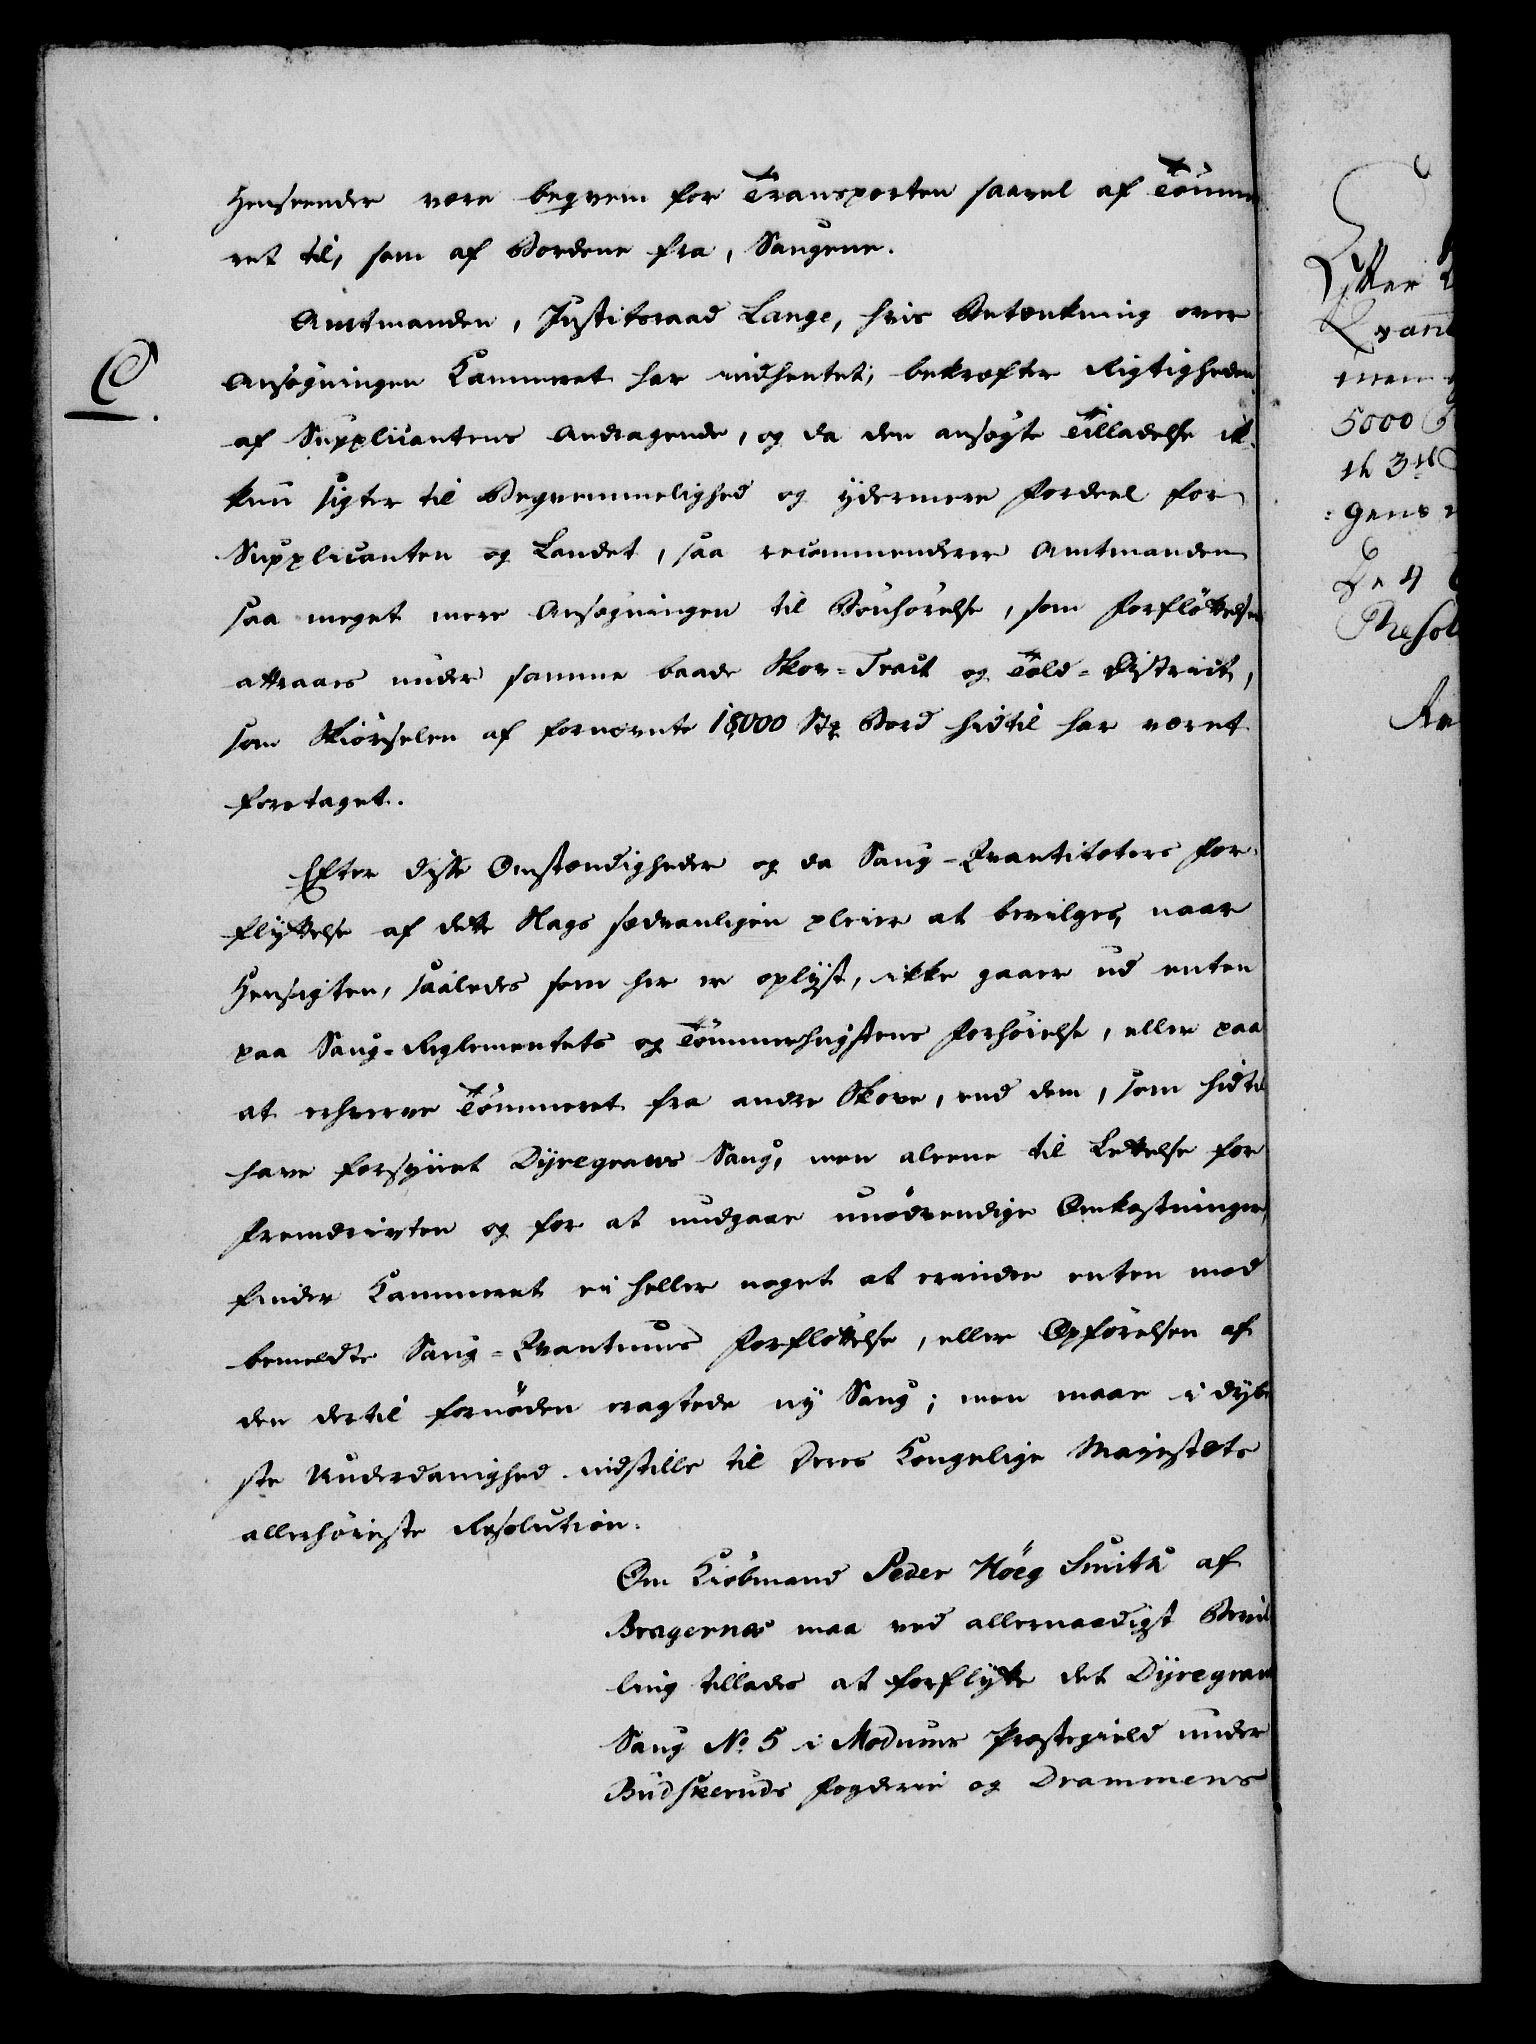 Henseender være beqvem for Transporten saavel af Tömme
ret til, som af Bordene fra, Saugene.
Amtmanden, Justitsraad Lange, hvis Betænkning over
C.
Ansøgningen Kammeret har indhentet, bekræfter Rigtigheden
af Supplicantens Andragende, og da den ansøgte Tilladelse ik-
kun sigter til Beqvemmelighed og ydermere Fordeel for
Supplicanten og Landet, saa recommenderer Amtmanden
saa meget mere Ansøgningen til Bönhörelse, som Forflöttelsen
attraaes under samme baade Skov-Tract og Told-District,
som Skiörselen af fornævnte 18,000 Stk Bord hidtil har været
foretaget.
Efter disse Omstændigheder og da Saug-Qvantiteters For-
flyttelse af dette Slags sædvanligen pleier at bevilges, naar
Hensigten, saaledes som her er oplyst, ikke gaaer ud enten
paa Saug-Reglementets og Tömmerhugstens Forhöielse, eller paa
at erhverve Tömmeret fra andre Skove, end dem, som hidtil
have forsynet Dyregravs Saug, men aleene til Lettelse for
Fremdrivten og for at undgaae unödvendige Omkostninger,
finder Kammeret ei heller noget at erindre enten mod
bemeldte Saug-Qvantums Forflöttelse, eller Opförelsen af
den dertil fornöden eragtede ny Saug; men maae i dybe
ste Underdanighed indstille til Deres Kongelige Majestæts
allerhöieste Resolution.
Om Kiöbmand Peder Höeg Smith af
Bragernæs maa ved allernaadigst Bevil
ling tillades at forflytte det Dyregrav
Saug No. 5 i Modums Præstegield under
Budskeruds Fogderie og Drammens
Efter
Qvant
men
5000
th 3
gens
De 4
Resol